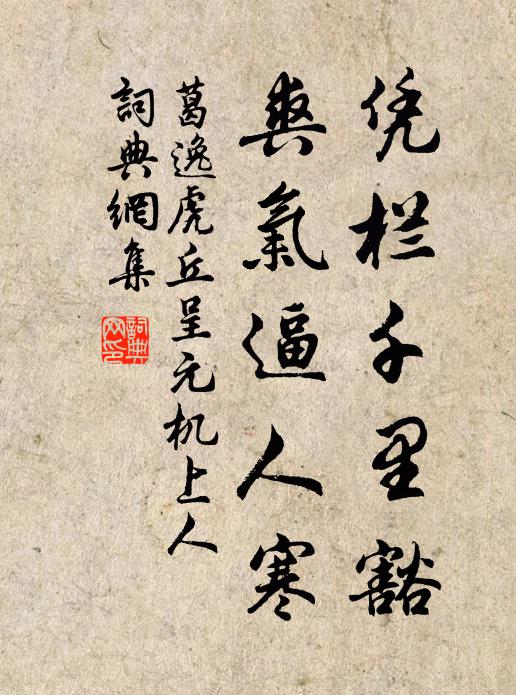 凭栏千里豁
爽氣逼人寒
葛逸虎丘呈元机上人
詞典網集
詞典網印